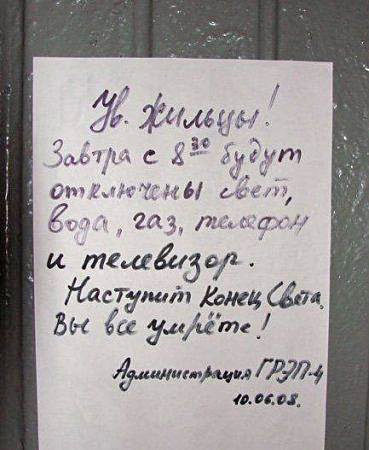 Ув. жильцы!
Завтра с 8³⁰ будут
отключены свет,
вода, газ, телефон
и телевизор.
Наступит Конец Света.
Вы все умрёте!
Администрация ГРЭП-4
10.06.08.